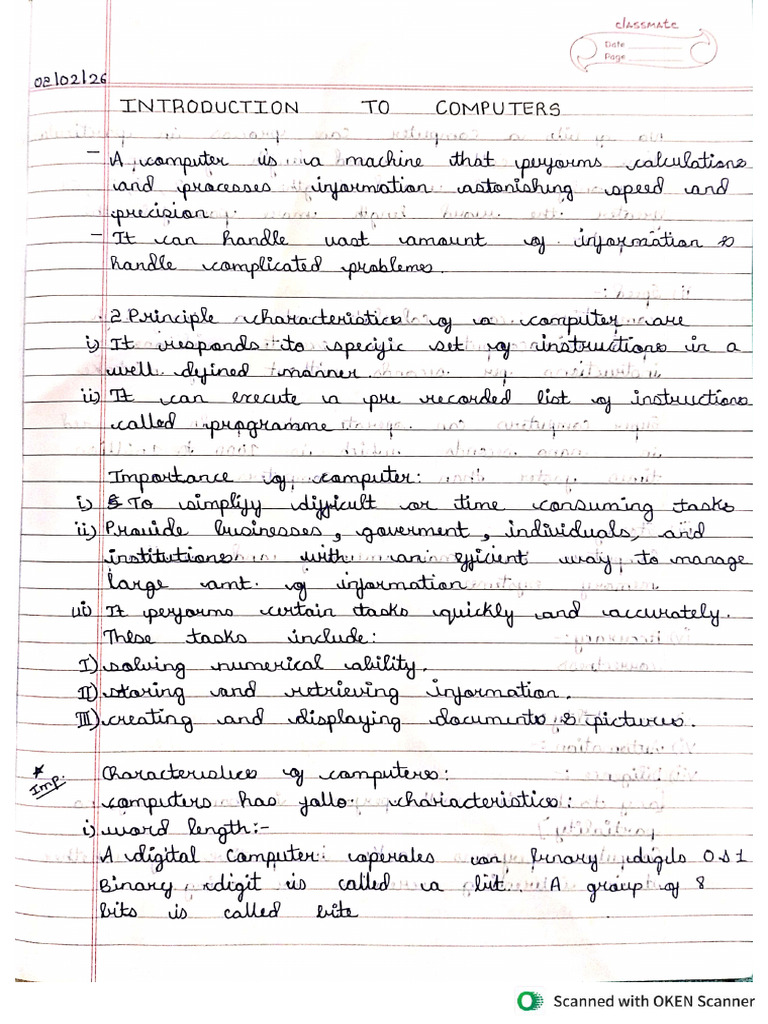 classmate
Date
Page
02/02/26
INTRODUCTION TO COMPUTERS
- A computer is a machine that performs calculations
and processes information astonishing speed and
precision.
- It can handle vast amount of information &
handle complicated problems.
2 Principle characteristics of a computer are
i) It responds to specific set of instructions in a
well defined manner.
ii) It can execute a pre recorded list of instructions
called programme
Importance of computer:
i) To simplify difficult or time consuming tasks
ii) Provide businesses, goverment, individuals, and
institutions with an efficient way to manage
large amt. of information
iii) It performs certain tasks quickly and accurately.
These tasks include:
I) solving numerical ability.
II) storing and retrieving information.
III) creating and displaying documents & pictures.
* Imp.
Characteristics of computers:
computers has follo. characteristics:
i) word length:-
A digital computer operates on binary digits 0 & 1
Binary digit is called a bit. A group of 8
bits is called bite
Scanned with OKEN Scanner